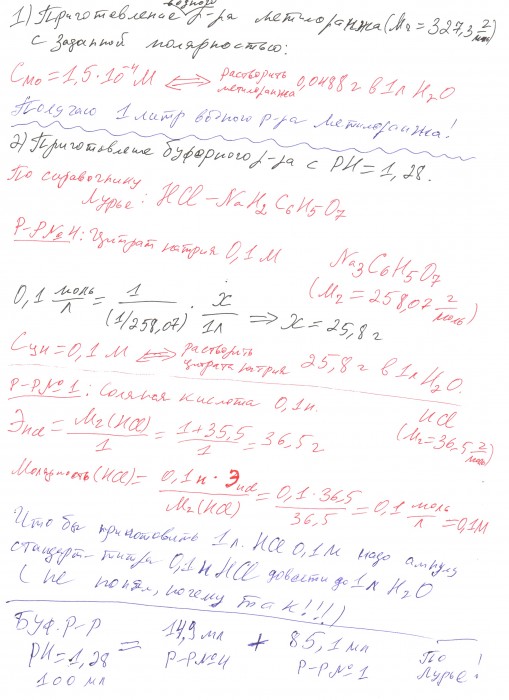 водного
1) Приготовление р-ра метилоранжа (Mr = 327,3 г/моль)
с заданной полярностью:
Cмо = 1,5·10⁻⁴ M ⟺ растворить метилоранжа 0,0488 г в 1 л H₂O
Получаю 1 литр водного р-ра метилоранжа!
2) Приготовление буферного р-ра с PH = 1,28.
По справочнику
Лурье: HCl – NaH₂C₆H₅O₇
Р-Р№4: Цитрат натрия 0,1 M
Na₃C₆H₅O₇
(Mr = 258,07 г/моль)
0,1 моль/л = 1/(1/258,07) · x/1л ⟹ x = 25,8 г
Cцн = 0,1 M ⟺ растворить цитрата натрия 25,8 г в 1 л H₂O.
Р-Р№1: Соляная кислота 0,1н.
HCl
(Mr = 36,5 г/моль)
Эhcl = Mr(HCl)/1 = 1+35,5/1 = 36,5 г
Молярность(HCl) = 0,1н · Эhcl/Mr(HCl) = 0,1·36,5/36,5 = 0,1 моль/л = 0,1M
Что бы приготовить 1 л. HCl 0,1 M надо ампулу
стандарт-титра 0,1 н HCl довести до 1 л H₂O
(не понял, почему так!!!)
БУФ. Р-Р
PH = 1,28
100 мл
= 14,9 мл Р-Р№4 + 85,1 мл Р-Р№1
По Лурье!